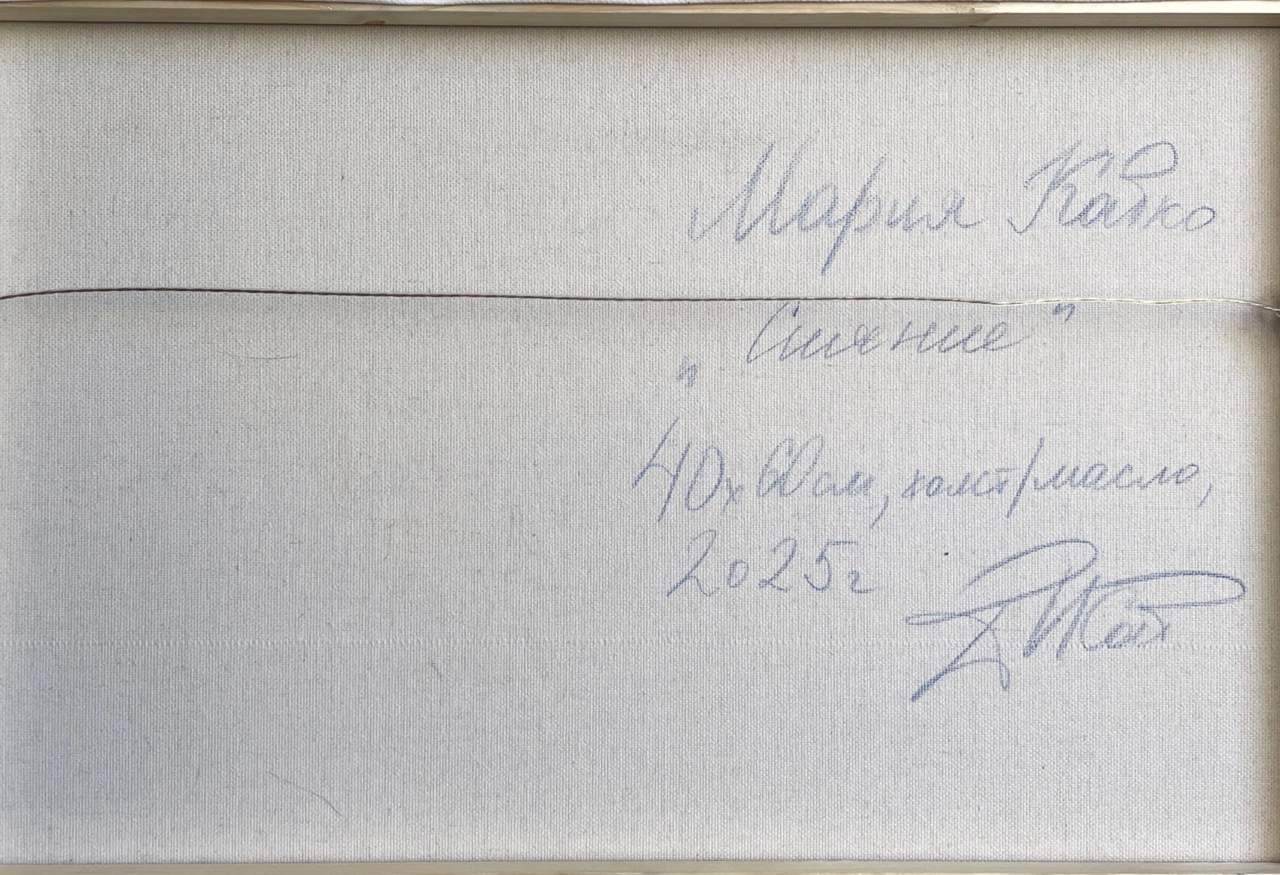 Мария Кабко
„Сияние"
40х60см, холст/масло,
2025г